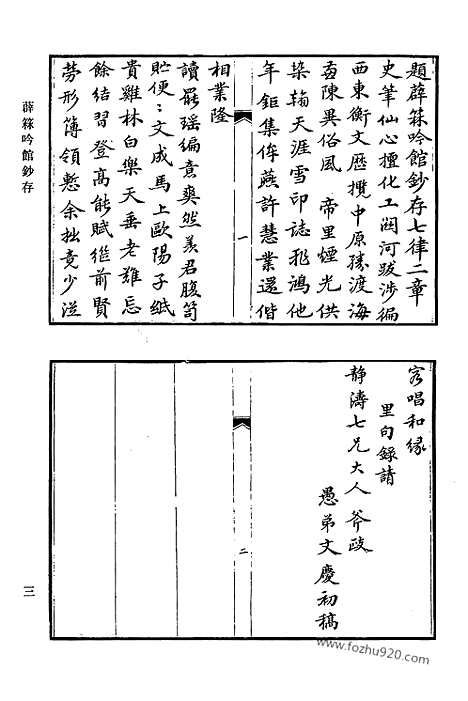 題薜箖吟館鈔存七律二章
史筆仙心擅化工關河跋涉徧
西東衡文歷攬中原勝渡海
陳異俗風 帝里煙光供
染翰天涯雪印誌飛鴻他
年鉅集侔燕許慧業還偕
相業隆
讀罷瑤編意爽然羨君腹笥
貯便〻文成馬上歐陽子紙
貴雞林白樂天垂老難忘
餘結習登高能賦繼前賢
勞形簿領慙余拙竟少從
一
容唱和緣
里句錄請
静濤七兄大人斧政
愚弟文慶初稿
二
薜箖吟館鈔存
三
www.fozhu920.com